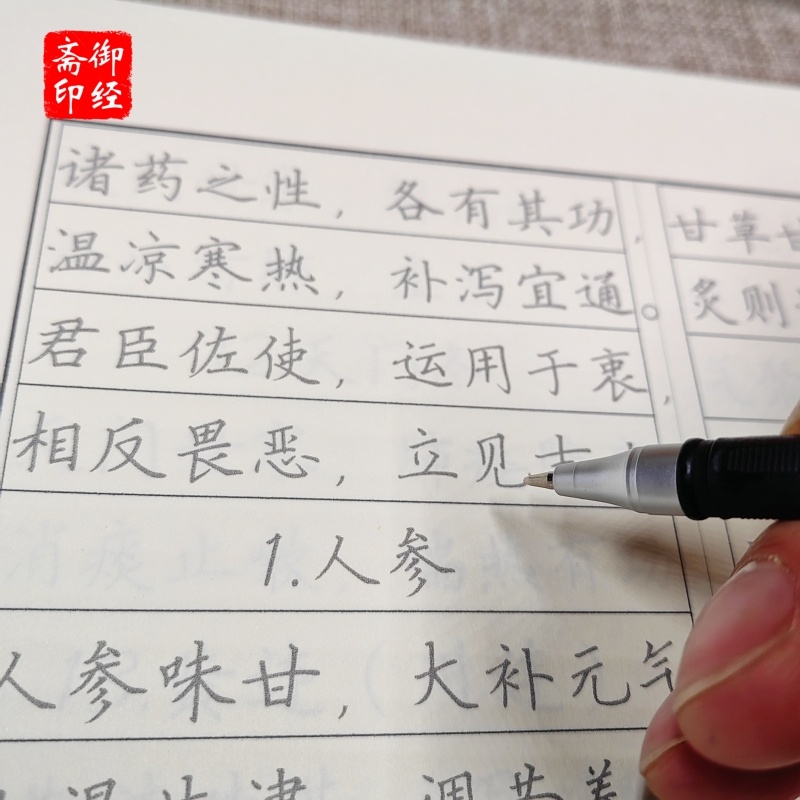 御经
斋印
诸药之性，各有其功，
温凉寒热，补泻宜通。
君臣佐使，运用于衷，
相反畏恶，立见
1.人参
人参味甘，大补元气
调荣养
甘草甘
炙则